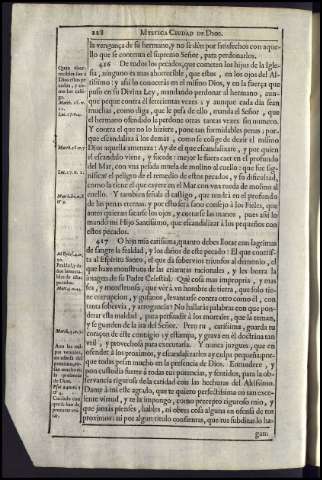 228 MYSTICA CIUDAD DE DIOS.
la vengança de su hermano, y no se dèn por satisfechos con aque-
llo que se contenta el supremo Señor, para perdonarlos.
426 De todos los pecados, que cometen los hijos de la Igle-
sia, ninguno es mas aborrecible, que estos, en los ojos del Al-
tissimo; y assi lo conoceràs en el mismo Dios, y en la fuerça que
puso en su Divina Ley, mandando perdonar al hermano, aun-
que peque contra èl setecientas vezes; y aunque cada dia sean
muchas, como diga, que le pesa de ello, manda el Señor, que
el hermano ofendido le perdone otras tantas vezes sin numero.
Y contra el que no lo hiziere, pone tan formidables penas; por-
que escandaliza à los demàs, como se colige de dezir el mismo
Dios aquella amenaza: Ay de el que escandalizare, y por quien
el escandalo viene, y sucede; mejor le fuera caer en el profundo
del Mar, con vna pesada muela de molino al cuello; que fue sig-
nificar el peligro de el remedio de estos pecados, y su dificultad,
como la tiene el que cayere en el Mar con vna rueda de molino al
cuello. Y tambien señala el castigo, que tendrà en el profundo
de las penas eternas; y por esto serà sano consejo à los Fieles, que
antes quieran sacarse los ojos, y cortarse las manos, pues assi lo
mandò mi Hijo Santissimo, que escandalizar à los pequeños con
estos pecados.
427 O hija mia carissima, quanto debes llorar con lagrimas
de sangre la fealdad, y los daños de este pecado! El que contris-
ta al Espiritu Santo, el que dà sobervios triunfos al demonio, el
que haze monstruos de las criaturas racionales, y les borra la
imagen de su Padre Celestial. Què cosa mas impropria, y mas
fea, y monstruosa, que vèr à vn hombre de tierra, que solo tie-
ne corrupcion, y gusanos, levantarse contra otro como èl, con
tanta sobervia, y arrogancia? No hallaràs palabras con que pon-
derar esta maldad, para persuadir à los mortales, que la teman,
y se guarden de la ira del Señor. Pero tu, carissima, guarda tu
coraçon de este contagio, y estampa, y grava en èl doctrina tan
vtil, y provechosa para executarla. Y nunca juzgues, que en
ofender à los proximos, y escandalizarlos ay culpa pequeña, por-
que todas pesan mucho en la presencia de Dios. Enmudece, y
pon custodia fuerte à todas tus potencias, y sentidos, para la ob-
servancia rigurosa de la caridad con las hechuras del Altissimo.
Dame à mi este agrado, que te quiero perfectissima en tan exce-
lente virtud, y te la impongo, como precepto riguroso mio, y
que jamàs pienses, hables, ni obres cosa alguna en ofensa de tus
proximos; ni por algun titulo consientas, que tus subditos lo ha-
gan,